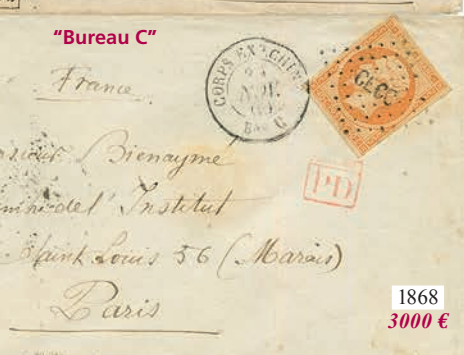 “Bureau C”
CORPS EXP. CHINE
NOV.
Bau C
CECC
France
Bienaymé
PD
de l'Institut
Saint Louis 56 (Marais)
Paris
1868
3000 €